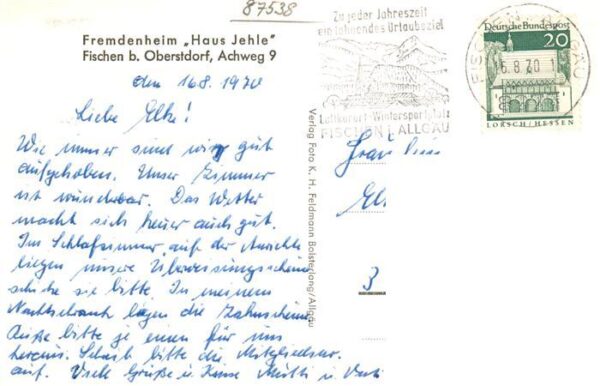 87538
Fremdenheim „Haus Jehle"
Fischen b. Oberstdorf, Achweg 9
den 16.8.1970
Liebe Elke!
Wie immer sind wir gut
aufgehoben. Unser Zimmer
ist wunderbar. Das Wetter
macht sich heuer auch gut.
Im Schlafzimmer auf der
liegen unsere Überweisungsscheine
schicke sie bitte. In meinem
Nachtschrank liegen die Zahnscheine
bitte je einen für uns
heraus. Schreib bitte die
auf. Viele Grüße u. Küsse Mutti u. Vati
Verlag Foto K. H. Feldmann Bolsterlang/Allgäu
Zu jeder Jahreszeit
ein lohnendes Urlaubsziel
Luftkurort-Wintersportplatz
FISCHEN I. ALLGÄU
Deutsche Bundespost
20
LORSCH/HESSEN
FISCHEN
8.70
Frau
3